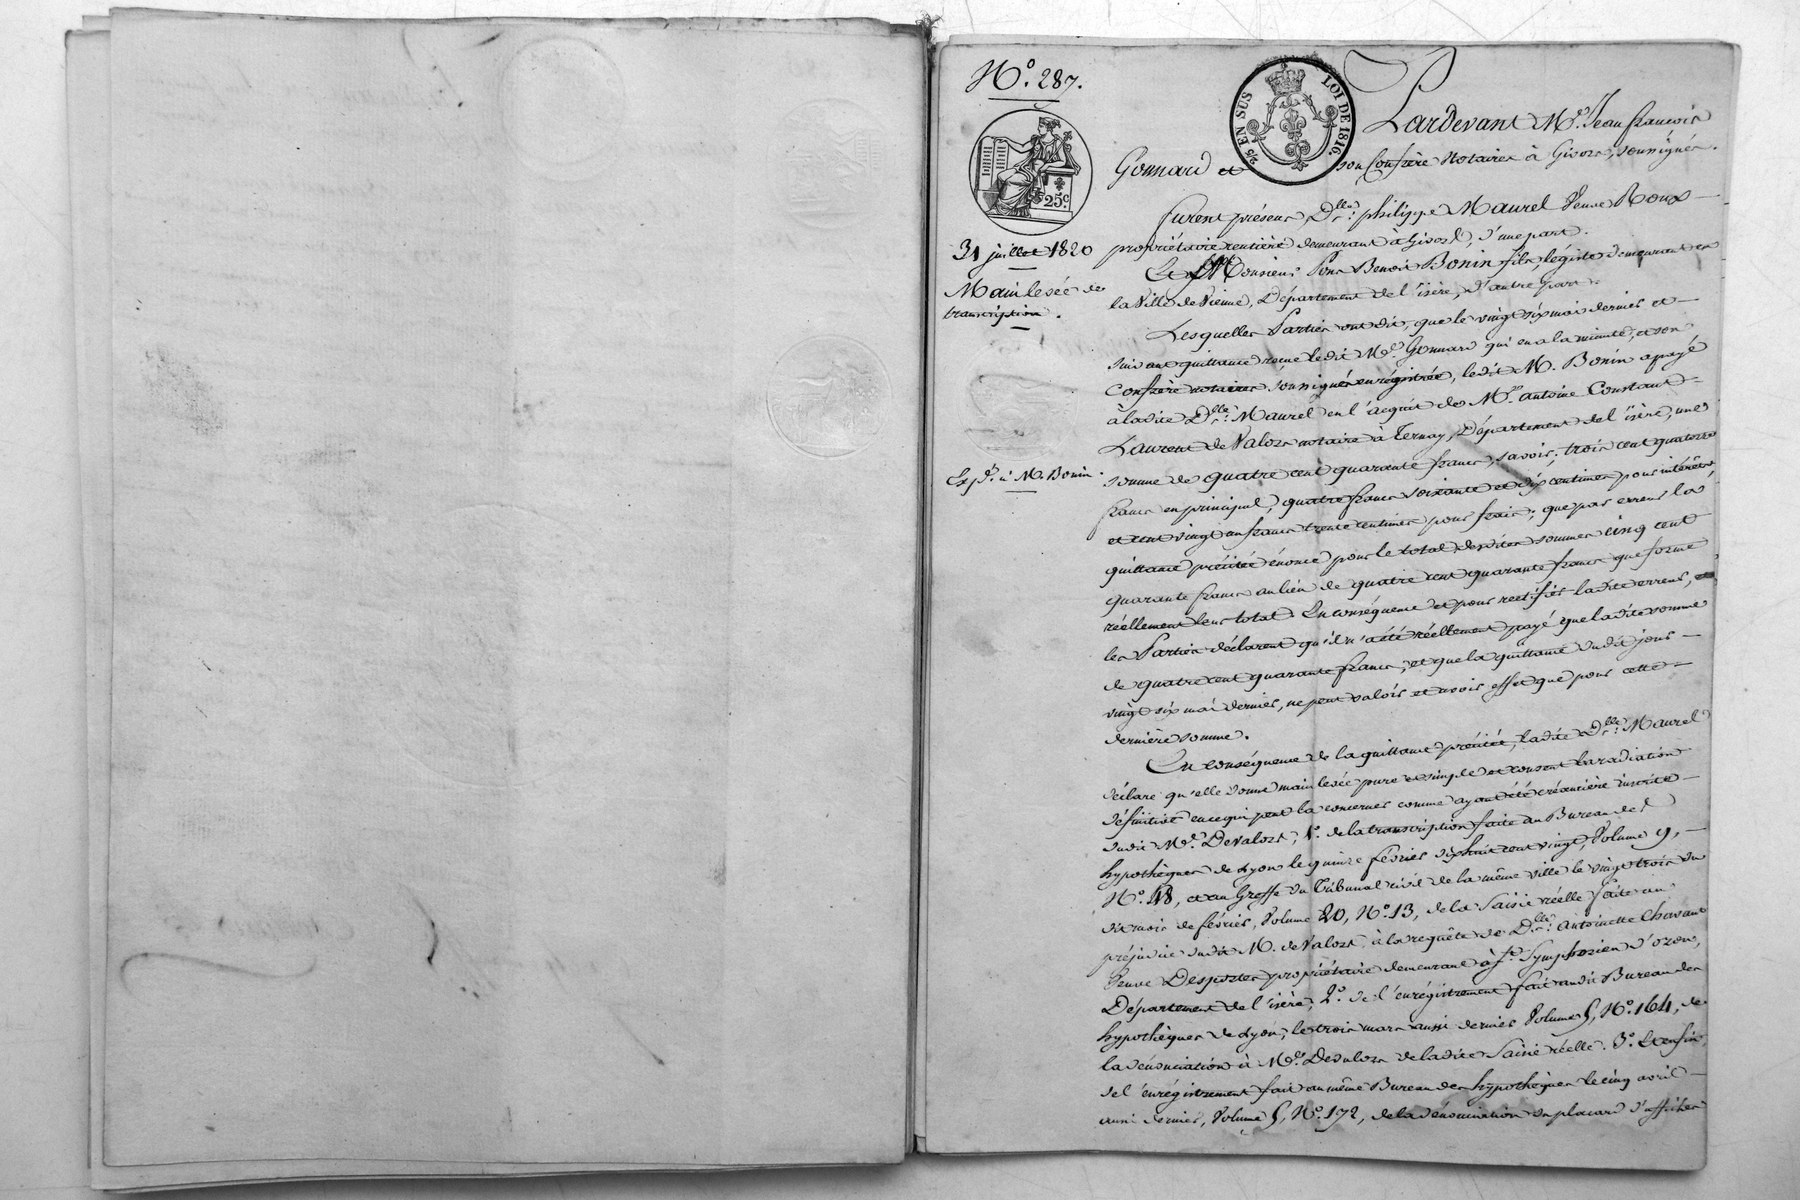 N.º 287.
2/5 EN SUS
LOI DE 1816.
25.c
31 juillet 1820
Main levée de
transcription.
Exp.on à M. Bonin.
Pardevant M.e Jean François
Gonnard et son Confrère Notaires à Givors, soussignés.
Furent présens, D.lle philippe Maurel Veuve Roux
propriétaire rentière demeurant à Givors, d'une part.
Et Monsieur Pons Benoit Bonin fils, légiste demeurant en
la Ville de Vienne, Département de l'isère, d'autre part.
Lesquelles Parties ont dit, que le vingt six mai dernier et
suivant quittance reçue ledit M.e Gonnard qui en a la minute, et son
Confrère notaires soussignés enregistrée, ledit M. Bonin a payé
à ladite D.lle Maurel en l'acquit de M.e antoine Constant
Laurent de Valors notaire à Ternay, Département de l'isère, une
somme de quatre cent quarante francs, savoir; trois cent quatorze
francs en principal, quatre francs soixante et dix centimes pour intérêts,
et cent vingt un francs trente centimes pour frais; que par erreur la
quittance précitée énonce pour le total desdites sommes cinq cent
quarante francs au lieu de quatre cent quarante francs que forme
réellement leur total. En conséquence et pour rectifier ladite erreur,
les Parties déclarent qu'il n'a été réellement payé que ladite somme
de quatre cent quarante francs, et que la quittance dudit jour
vingt six mai dernier, ne peut valoir et avoir effet que pour cette
dernière somme.
En conséquence de la quittance précitée, ladite D.lle Maurel
déclare qu'elle donne main levée pure et simple et consent la radiation
définitive en ce qui peut la concerner comme ayant été créancière inscrite
dudit M.e DeValors, 1.º de la transcription faite au Bureau des
hypothèques de Lyon le quinze février dix huit cent vingt, Volume 9,
N.º 18, et au Greffe du Tribunal civil de la même ville le vingt trois du
dit mois de février, Volume 20, N.º 13, de la Saisie réelle faite au
préjudice dudit M. de Valors, à la requête de D.lle Antoinette Chavant
Veuve Desportes propriétaire demeurant à S.t Symphorien d'ozon,
Département de l'isère, 2.º de l'enrégistrement fait audit Bureau des
hypothèques de Lyon, le trois mars aussi dernier Volume 5, N.º 164, de
la dénonciation à M.e Devalors de ladite Saisie réelle. 3.º Et enfin,
de l'enrégistrement fait au même Bureau des hypothèques le cinq avril
aussi dernier, Volume 5, N.º 172, de la dénonciation du placard d'affiches